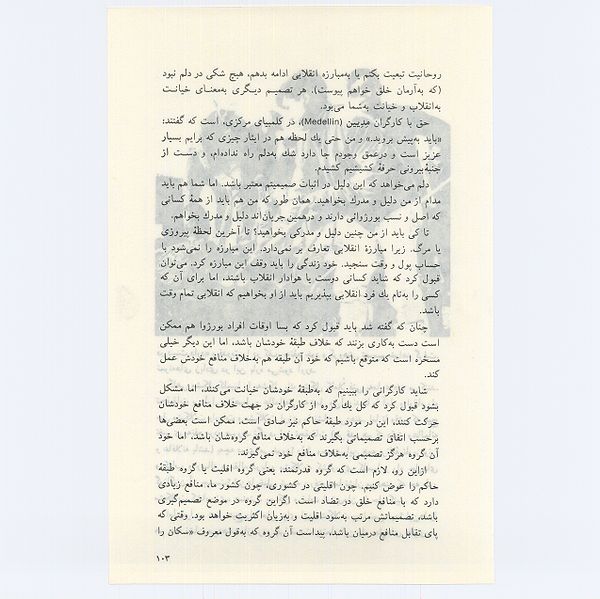 روحانیت تبعیت بکنم یا به‌مبارزه انقلابی ادامه بدهم، هیچ شکی در دلم نبود
(که به‌آرمان خلق خواهم پیوست). هر تصمیم دیگری به‌معنای خیانت
به‌انقلاب و خیانت به‌شما می‌بود.
حق با کارگران مدیین (Medellin)، در کلمبیای مرکزی، است که گفتند:
«باید به‌پیش بروید.» و من حتی یك لحظه هم در ایثار چیزی که برایم بسیار
عزیز است و درعمق وجودم جا دارد شك به‌دلم راه نداده‌ام، و دست از
جنبهٔ بیرونی حرفهٔ کشیشیم کشیدم.
دلم می‌خواهد که این دلیل در اثبات صمیمیتم معتبر باشد. اما شما هم باید
مدام از من دلیل و مدرك بخواهید. همان طور که من هم باید از همهٔ کسانی
که اصل و نسب بورژوائی دارند و درهمین جریان‌اند دلیل و مدرك بخواهم.
تا کی باید از من چنین دلیل و مدرکی بخواهید؟ تا آخرین لحظهٔ پیروزی
یا مرگ. زیرا مبارزهٔ انقلابی تعارف بر نمی‌دارد. این مبارزه را نمی‌شود با
حساب پول و وقت سنجید. خود زندگی را باید وقف این مبارزه کرد. می‌توان
قبول کرد که شاید کسانی دوست یا هوادار انقلاب باشند، اما برای آن که
کسی را به‌نام یك فرد انقلابی بپذیریم باید از او بخواهیم که انقلابی تمام وقت
باشد.
چنان که گفته شد باید قبول کرد که بسا اوقات افراد بورژوا هم ممکن
است دست به‌کاری بزنند که خلاف طبقهٔ خودشان باشد، اما این دیگر خیلی
مسخره است که متوقع باشیم که خود آن طبقه هم به‌خلاف منافع خودش عمل
کند.
شاید کارگرانی را ببینیم که به‌طبقهٔ خودشان خیانت می‌کنند، اما مشکل
بشود قبول کرد که کل یك گروه از کارگران در جهت خلاف منافع خودشان
حرکت کنند. این در مورد طبقهٔ حاکم نیز صادق است. ممکن است بعضی‌ها
برحسب اتفاق تصمیماتی بگیرند که به‌خلاف منافع گروه‌شان باشد، اما خود
آن گروه هرگز تصمیمی به‌خلاف منافع خود نمی‌گیرند.
ازاین رو، لازم است که گروه قدرتمند، یعنی گروه اقلیت یا گروه طبقهٔ
حاکم را عوض کنیم. چون اقلیتی در کشوری، چون کشور ما، منافع زیادی
دارد که با منافع خلق در تضاد است. اگراین گروه در موضع تصمیم‌گیری
باشد، تصمیماتش مرتب به‌سود اقلیت و به‌زیان اکثریت خواهد بود. وقتی که
پای تقابل منافع درمیان باشد، پیداست آن گروه که به‌قول معروف «سکان را
۱۰۳